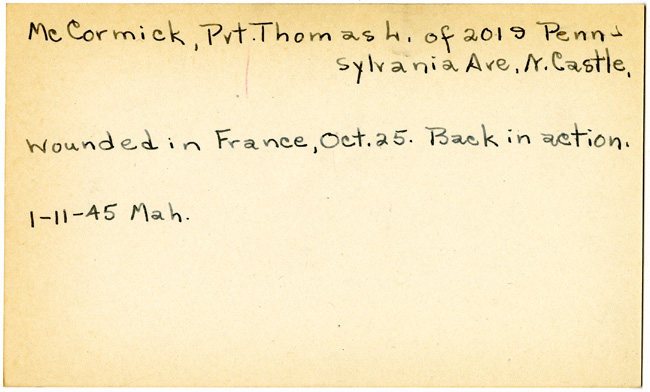 McCormick, Pvt. Thomas L. of 2019 Penn-
sylvania Ave, N. Castle,
wounded in France, Oct. 25. Back in action.
1-11-45 Mah.